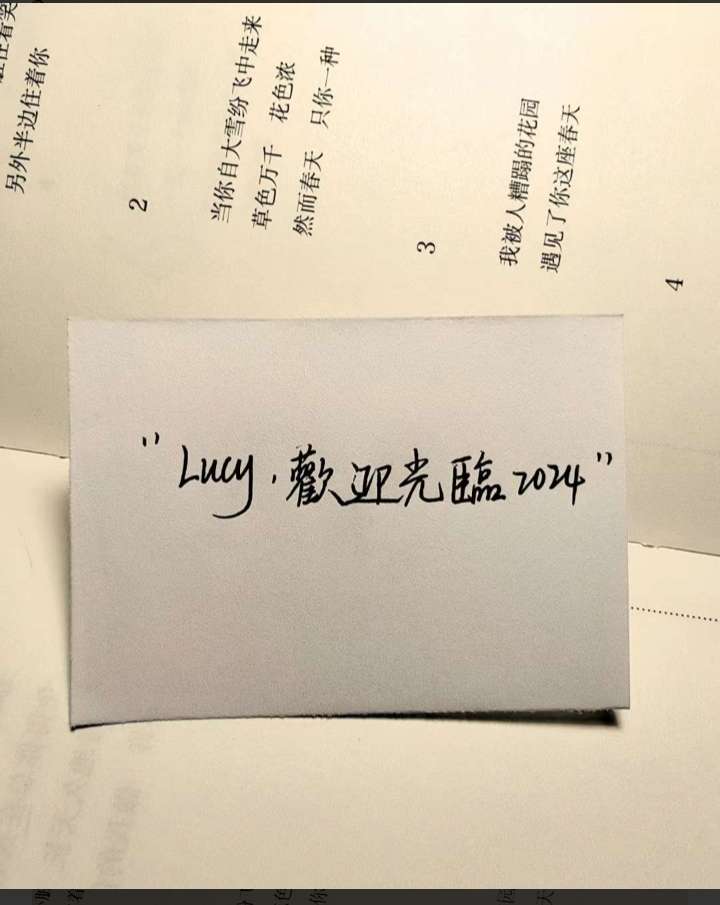 另外半边住着你
2
当你自大雪纷飞中走来
草色万千 花色浓
然而春天 只你一种
3
我被人糟蹋的花园
遇见了你这座春天
4
"Lucy,歡迎光臨2024"